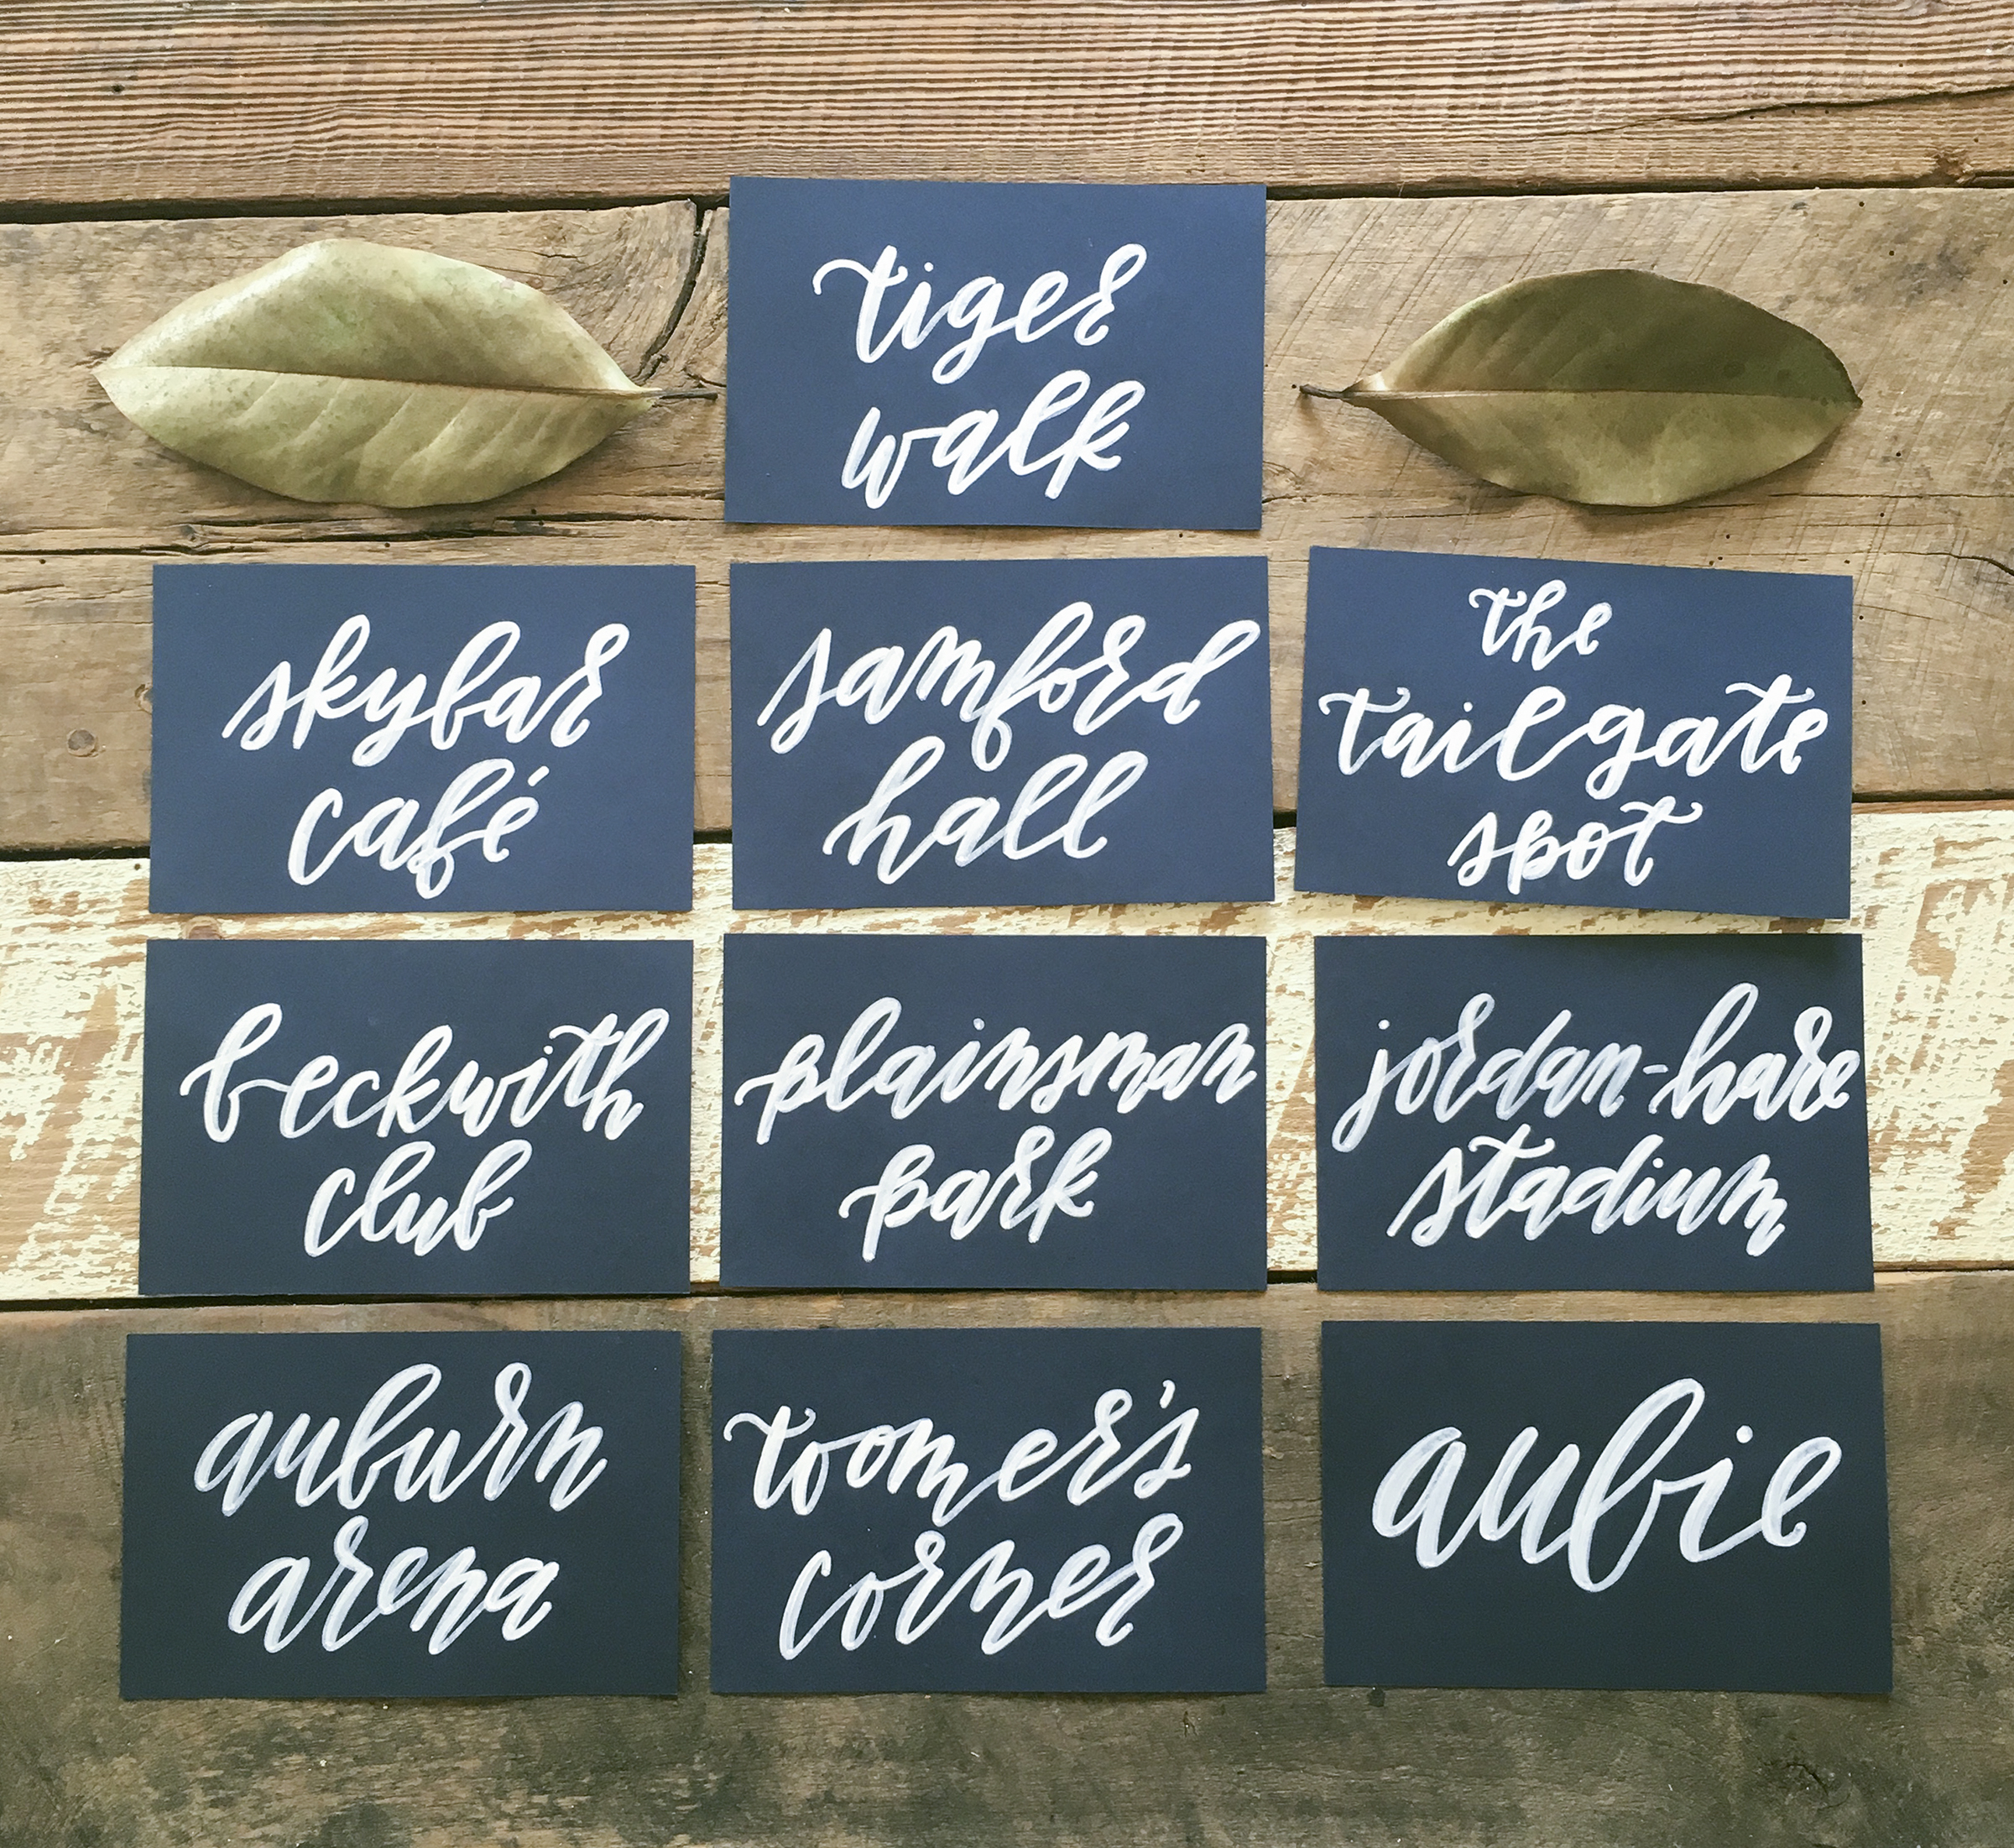 tiger
walk
skybar
café
samford
hall
the
tailgate
spot
beckwith
club
plainsman
park
jordan-hare
stadium
auburn
arena
toomer's
corner
aubie